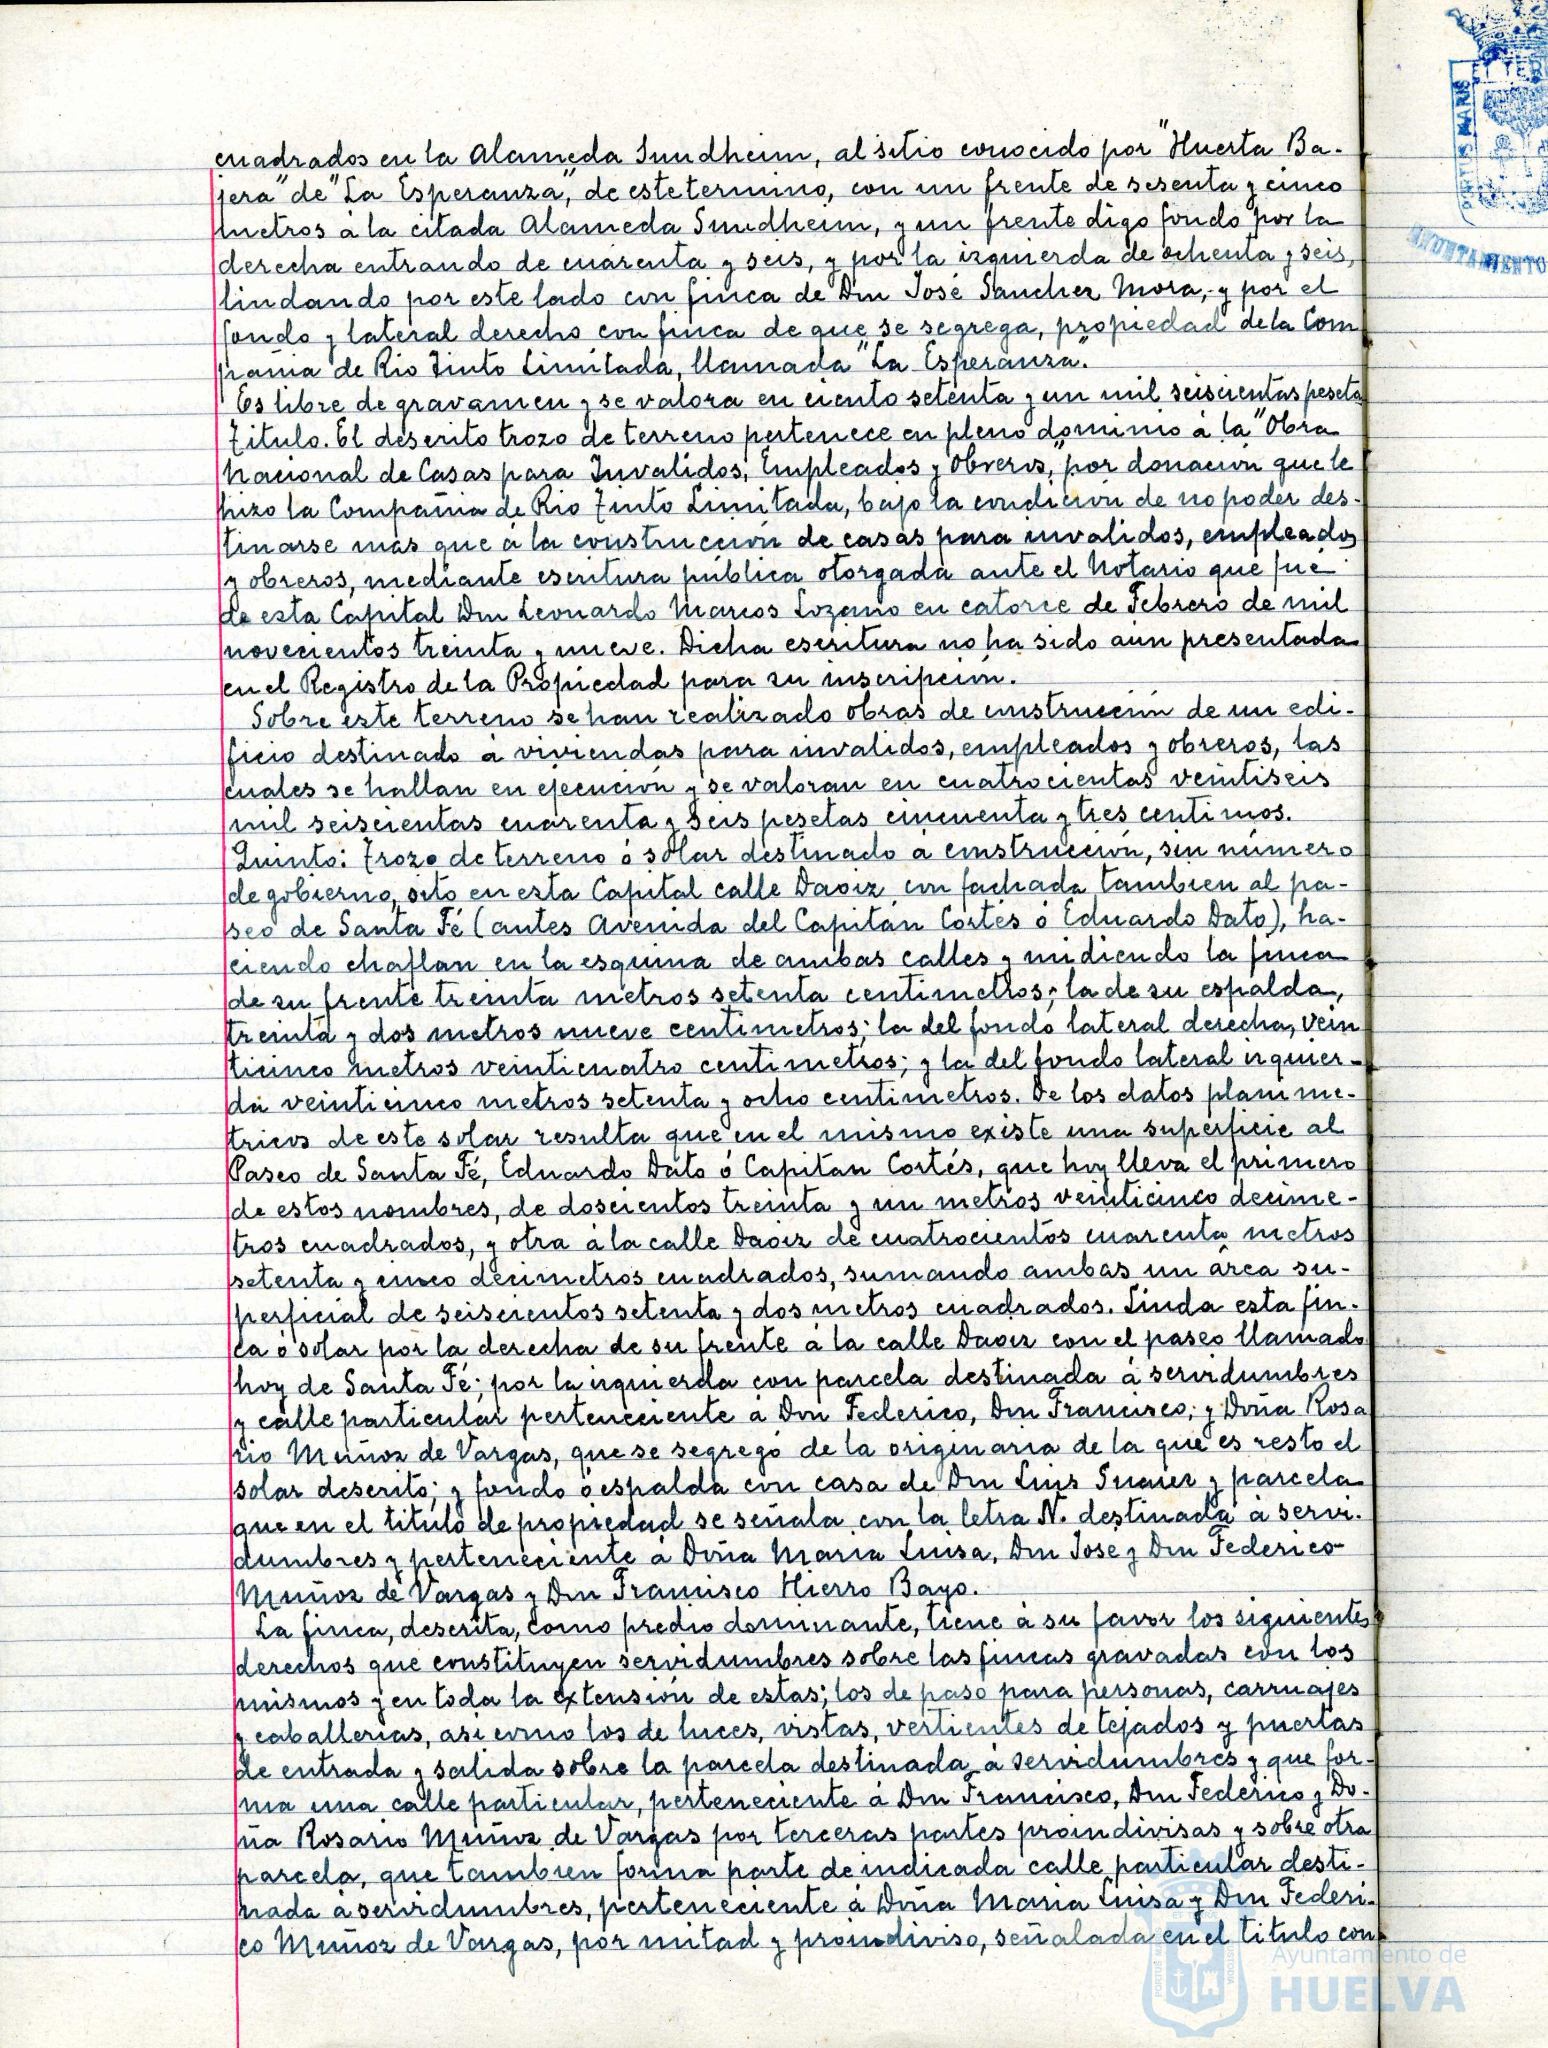 cuadrados en la Alameda Sundheim, al sitio conocido por "Huerta Ba-
jera" de "La Esperanza", de este termino, con un frente de sesenta y cinco
metros à la citada Alameda Sundheim, y un frente digo fondo por la
derecha entrando de cuarenta y seis, y por la izquierda de ochenta y seis,
lindando por este lado con finca de Don José Sanchez Mora, y por el
fondo y lateral derecho con finca de que se segrega, propiedad de la Com
pañia de Rio Tinto Limitada, llamada "La Esperanza".
Es libre de gravamen y se valora en ciento setenta y un mil seiscientas peseta
Titulo. El descrito trozo de terreno pertenece en pleno dominio à la "Obra
Nacional de Casas para Invalidos, Empleados y Obreros," por donación que le
hizo la Compañia de Rio Tinto Limitada, bajo la condición de no poder des-
tinarse mas que à la construcción de casas para invalidos, empleados
y obreros, mediante escritura pública otorgada ante el Notario que fué
de esta Capital Don Leonardo Marcos Lozano en catorce de Febrero de mil
novecientos treinta y nueve. Dicha escritura no ha sido aún presentada
en el Registro de la Propiedad para su inscripción.
Sobre este terreno se han realizado obras de construcción de un edi-
ficio destinado à viviendas para invalidos, empleados y obreros, las
cuales se hallan en ejecución y se valoran en cuatrocientas veintiseis
mil seiscientas cuarenta y seis pesetas cincuenta y tres centimos.
Quinto: Trozo de terreno ó solar destinado a construcción, sin número
de gobierno, sito en esta Capital calle Daoiz, con fachada tambien al pa-
seo de Santa Fé (antes Avenida del Capitán Cortés ó Eduardo Dato), ha-
ciendo chaflan en la esquina de ambas calles y midiendo la finca
de su frente treinta metros setenta centimetros; la de su espalda,
treinta y dos metros nueve centimetros; la del fondo lateral derecha, vein
ticinco metros veinticuatro centimetros; y la del fondo lateral izquier-
da veinticinco metros setenta y ocho centimetros. De los datos planime-
tricos de este solar resulta que en el mismo existe una superficie al
Paseo de Santa Fé, Eduardo Dato ó Capitan Cortés, que hoy lleva el primero
de estos nombres, de doscientos treinta y un metros veinticinco decime-
tros cuadrados, y otra à la calle Daoiz de cuatrocientos cuarenta metros
setenta y cinco decimetros cuadrados, sumando ambas un área su-
perficial de seiscientos setenta y dos metros cuadrados. Linda esta fin-
ca ó solar por la derecha de su frente à la calle Daoiz con el paseo llamado
hoy de Santa Fé; por la izquierda con parcela destinada à servidumbres
y calle particular perteneciente à Don Federico, Don Francisco, y Doña Rosa
rio Muñoz de Vargas, que se segregó de la originaria de la que es resto el
solar descrito; y fondo ó espalda con casa de Don Luis Suarez y parcela
que en el titulo de propiedad se señala con la letra N. destinada à servi-
dumbres y perteneciente à Doña Maria Luisa, Don Jose y Don Federico
Muñoz de Vargas y Don Francisco Hierro Bayo.
La finca, descrita, como predio dominante, tiene à su favor los siguientes
derechos que constituyen servidumbres sobre las fincas gravadas con los
mismos y en toda la extensión de estas; los de paso para personas, carruajes
y caballerias, asi como los de luces, vistas, vertientes de tejados y puertas
de entrada y salida sobre la parcela destinada à servidumbres y que for-
ma una calle particular, perteneciente à Don Francisco, Don Federico y Do-
ña Rosario Muñoz de Vargas por terceras partes proindivisas y sobre otra
parcela, que tambien forma parte de indicada calle particular desti-
nada à servidumbres, perteneciente à Doña Maria Luisa y Don Federi-
co Muñoz de Vargas, por mitad y proindiviso, señalada en el titulo con
AYUNTAMIENTO
Ayuntamiento de
HUELVA